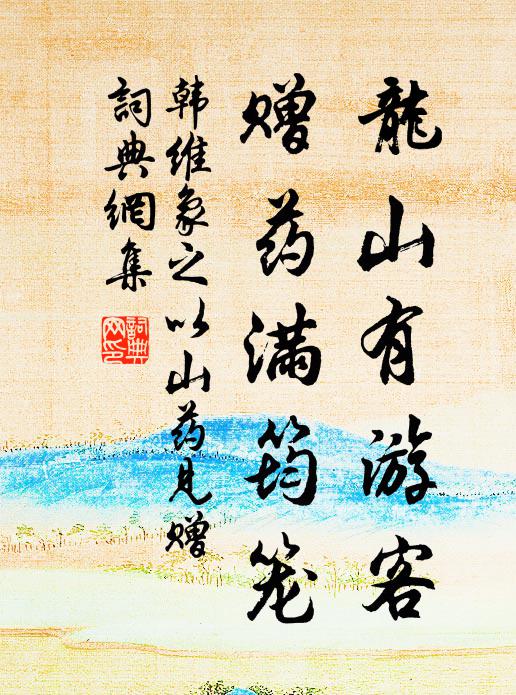 龍山有游客
赠药满筠笼
韩维象之以山药见赠
詞典網集
詞典
网印